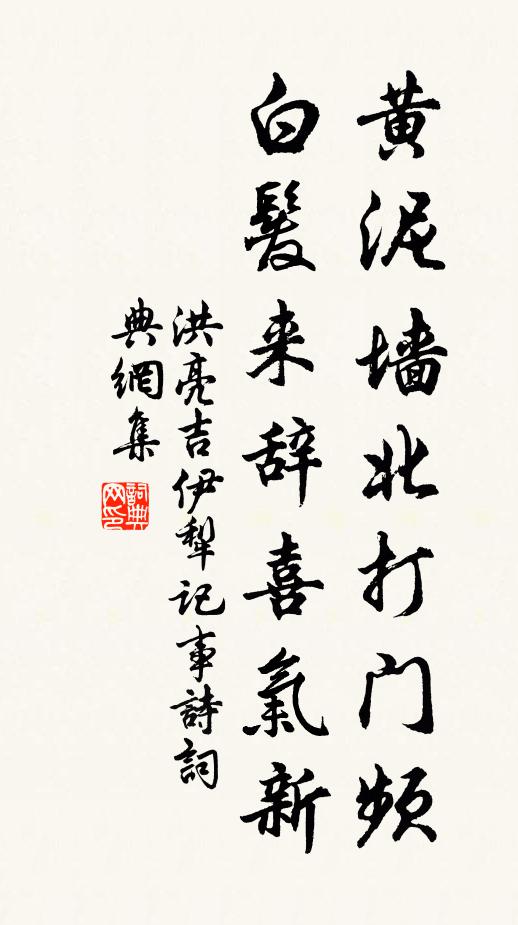 黄泥墙北打门频
白髮来辞喜氣新
洪亮吉伊犁记事詩詞
典網集
詞典网印